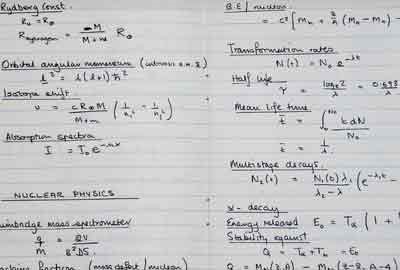 Rydberg Const.
R₀ = R∞
R_hydrogen = M / (M + m) R∞
Orbital angular momentum
l² = l(l+1) ħ²
Isotope shift.
υ = cR∞M / (M+m) (1/n₁² - 1/n₂²)
Absorption spectra
I = I₀ e
NUCLEAR PHYSICS
mass spectrometer
q/m =
fraction (mass defect / nucleon)
B.E / nucleon
= c² [Mn + z/A (
Transformation rates.
N(t) = N₀ e^-λt
Half life
τ = loge2 / λ = 0.693
Mean life time.
t̄ = ∫ t dN / N₀
t̄ = 1/λ
Multistage decays.
N₂(t) = N₁(0) λ₁ / (λ₂ - λ₁) (e^-λ₁t -
α - decay
Energy released E₀ = Tα (1 +
Stability against
Q = Tα + Tb = E₀